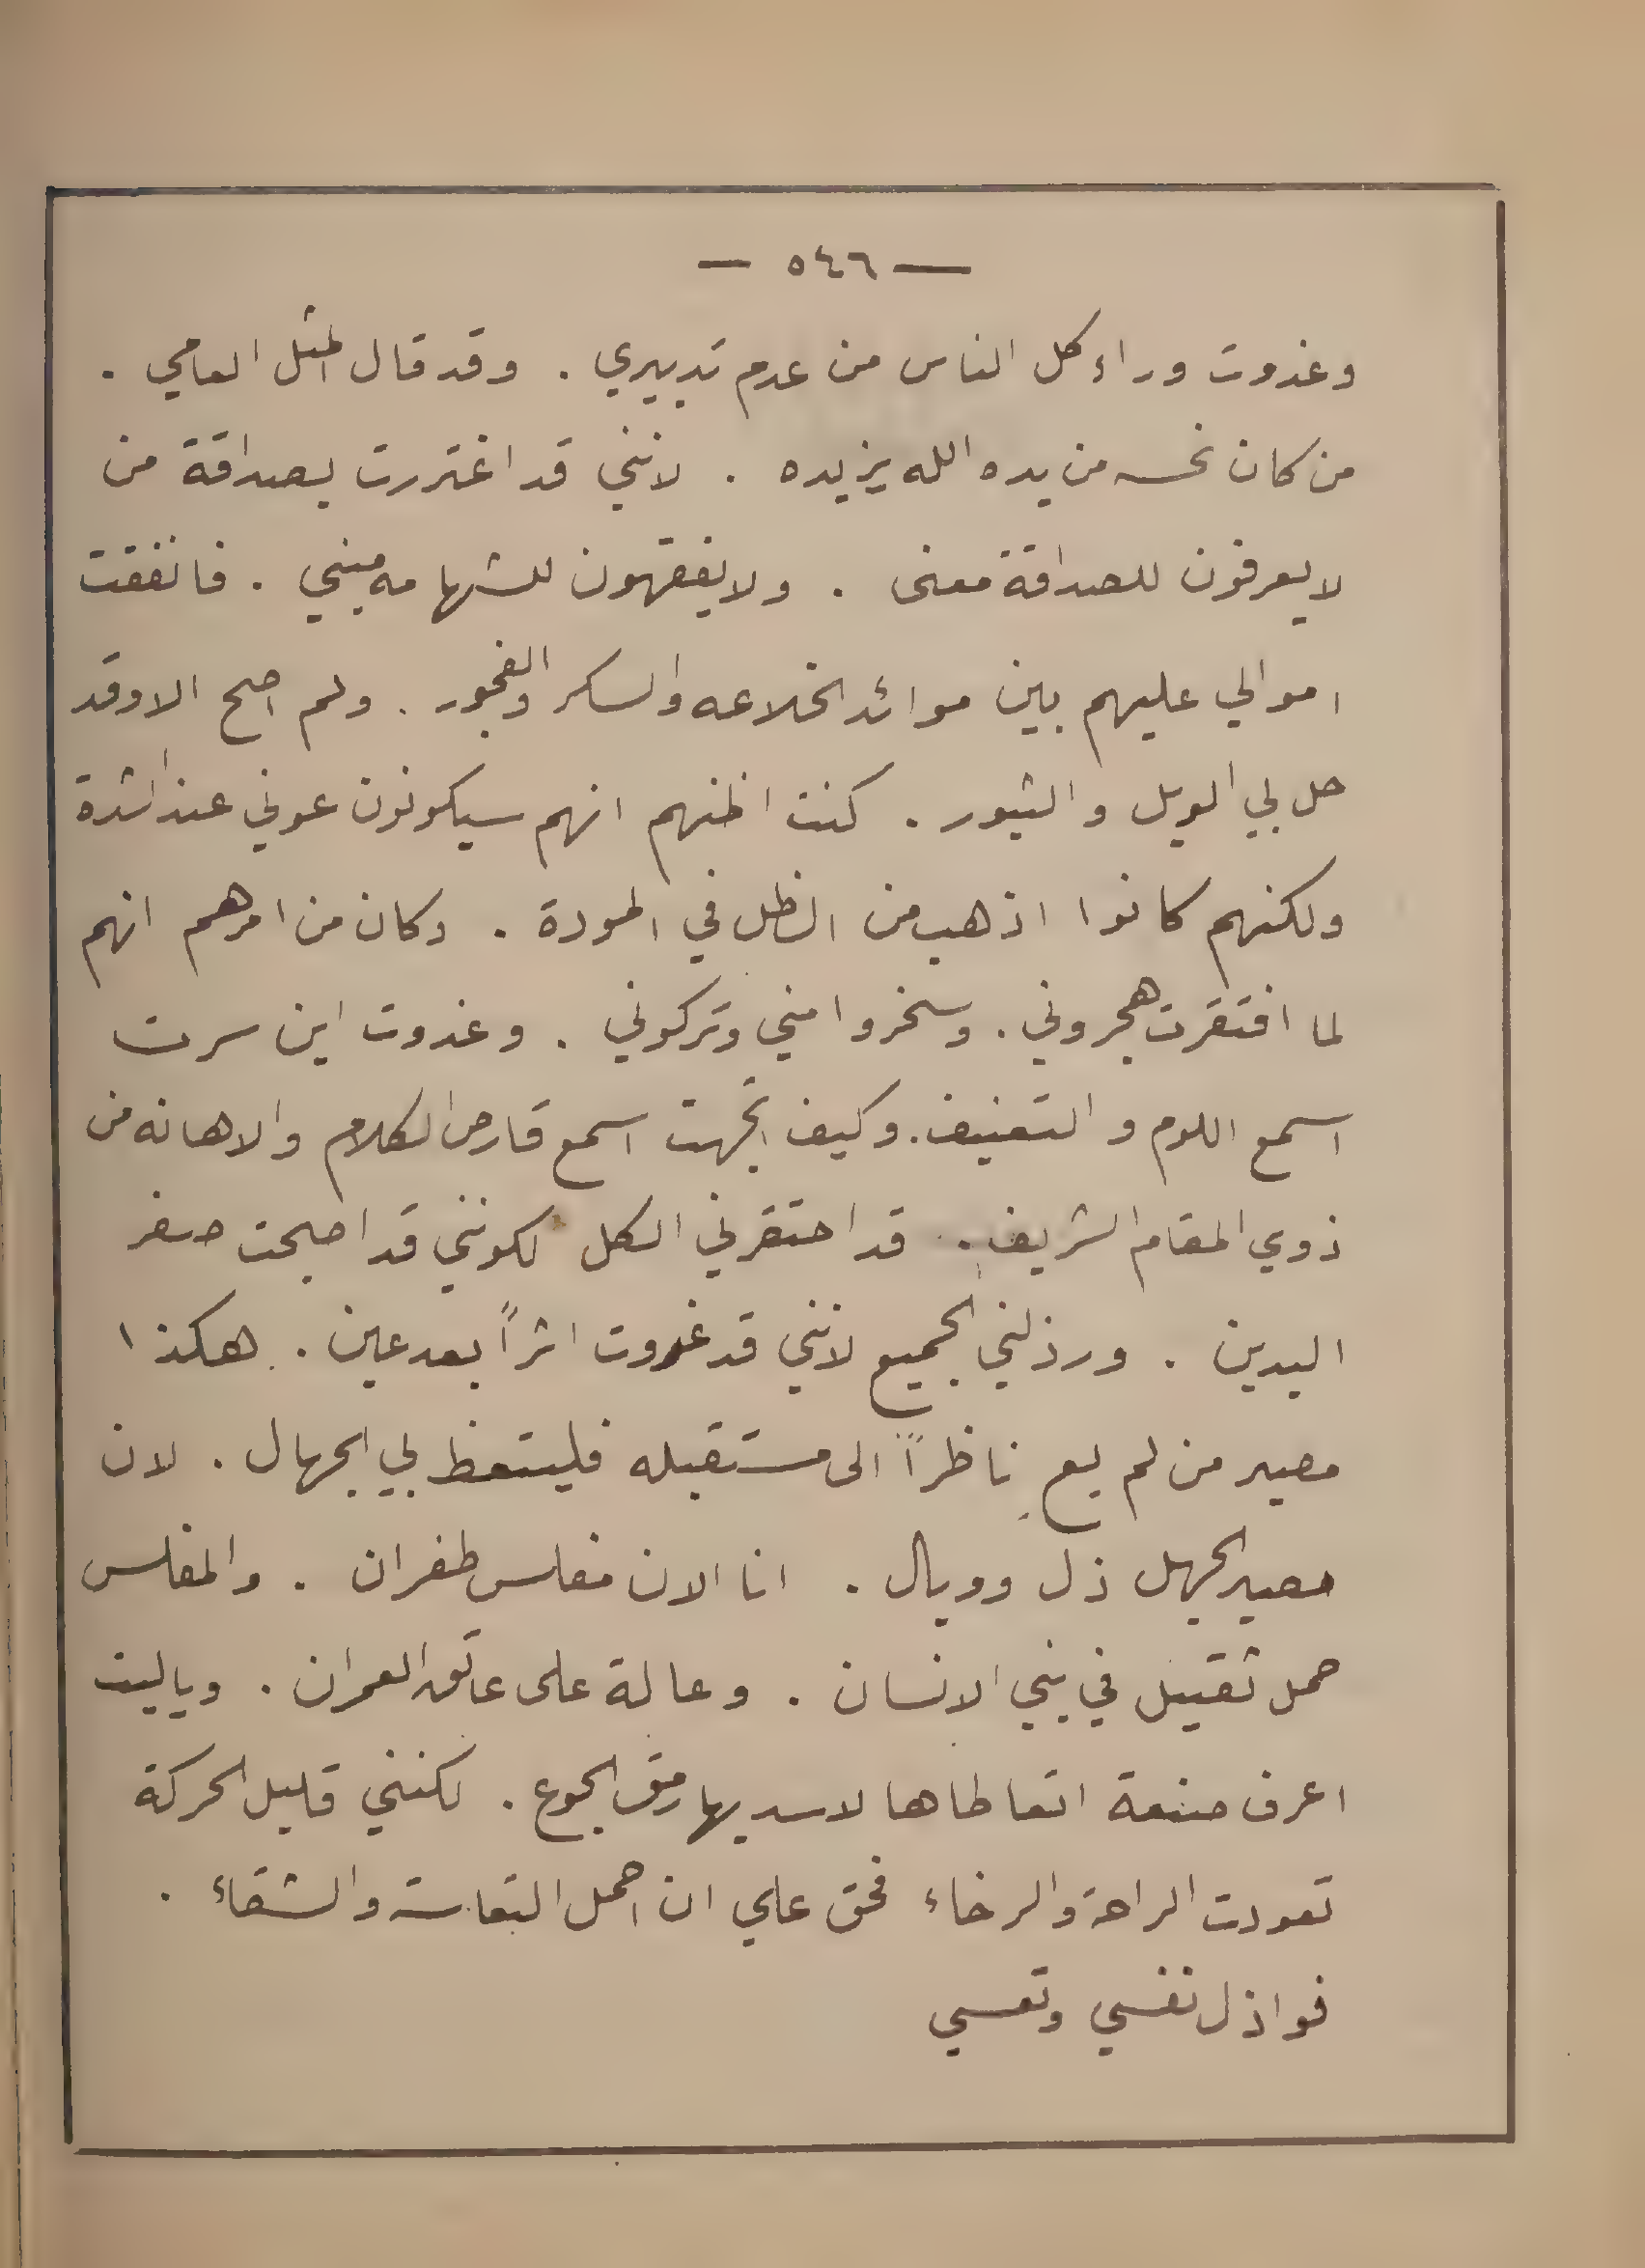 — ٥٤٦ —
وغدوت وراء كل الناس من عدم تدبيري . وقد قال المثل العامي .
من كان نحسه من يده الله يزيده . لانني قد اغتررت بصداقة من
لا يعرفون للصداقة معنى . ولا يفقهون للشهامه مبنى . فانفقت
اموالي عليهم بين موائد الخلاعه والسكر والفجور . ولم اصح الا وقد
حل بي الويل والثبور . كنت اظنهم انهم سيكونون عوني عند الشدة
ولكنهم كانوا اذهب من الظل في المودة . وكان من امرهم انهم
لما افتقرت هجروني . وسخروا مني وتركوني . وغدوت اين سرت
اسمع اللوم والتعنيف . وكيف اتجهت اسمع قارص الكلام والاهانه من
ذوي المقام الشريف . قد احتقرني الكل لكونني قد اصبحت صفر
اليدين . ورذلني الجميع لانني قد غدوت اثراً بعد عين . هكذا
مصير من لم يعِ ناظراً الى مستقبله فليتعظ بي الجهال . لان
مصير الجهل ذل ووبال . انا الان مفلس طفران . والمفلس
حمل ثقيل في بني الانسان . وعالة على عاتق العمران . وياليت
اعرف صنعة اتعاطاها لاسد بها رمق الجوع . لكنني قليل الحركة
تعودت الراحة والرخاء فحق علي ان احمل التعاسة والشقاء .
فواذل نفسي وتعسي